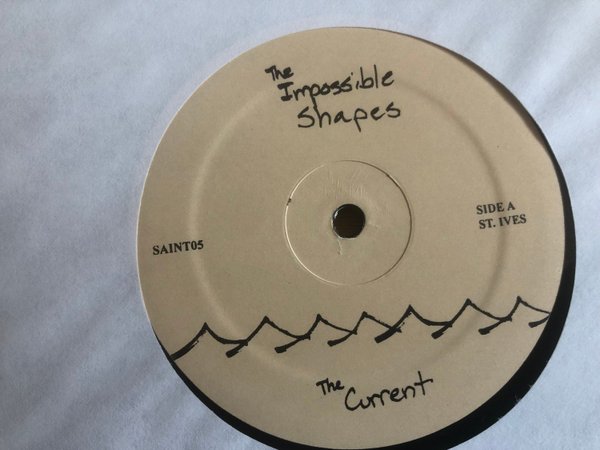 The
Impossible
Shapes
SAINT05
SIDE A
ST. IVES
The
Current